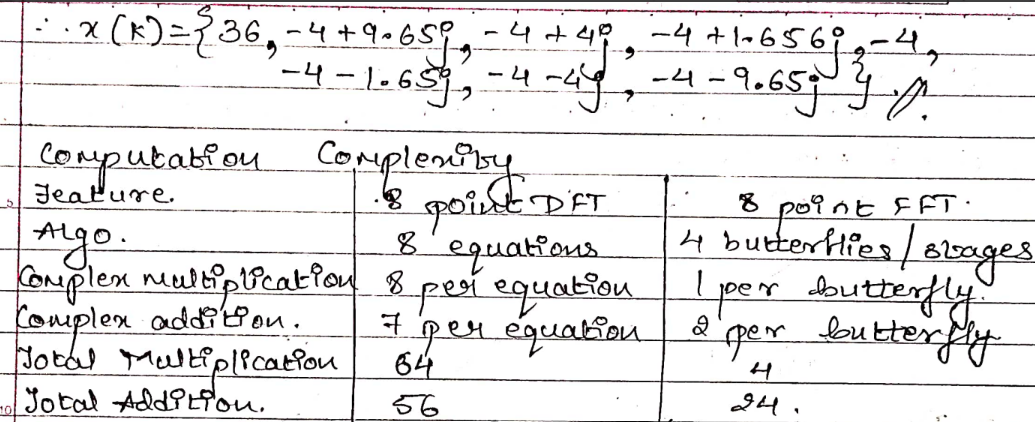 ∴ x(k)={36, -4+9.65j, -4+4j, -4+1.656j, -4,
-4-1.65j, -4-4j, -4-9.65j}
Computation Complexity
Feature. 8 point DFT 8 point FFT.
Algo. 8 equations 4 butterflies/stages
Complex multiplication 8 per equation 1 per butterfly.
Complex addition. 7 per equation 2 per butterfly
Total Multiplication 64 4
Total Addition. 56 24.